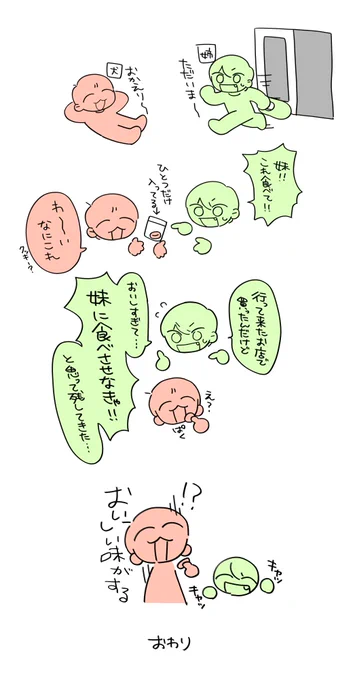 姉
ただいま〜
犬
おかえり〜
妹!!
これ食べて!!
ひとつだけ
入ってる
わ〜い
なにこれ
クッキー?
行って来たお店で
買ったんだけど
おいしすぎて…
妹に食べさせなきゃ!!
と思って残してきた…
え?
ぱく
!?
おいしい味がする
キャッ
キャッ
おわり